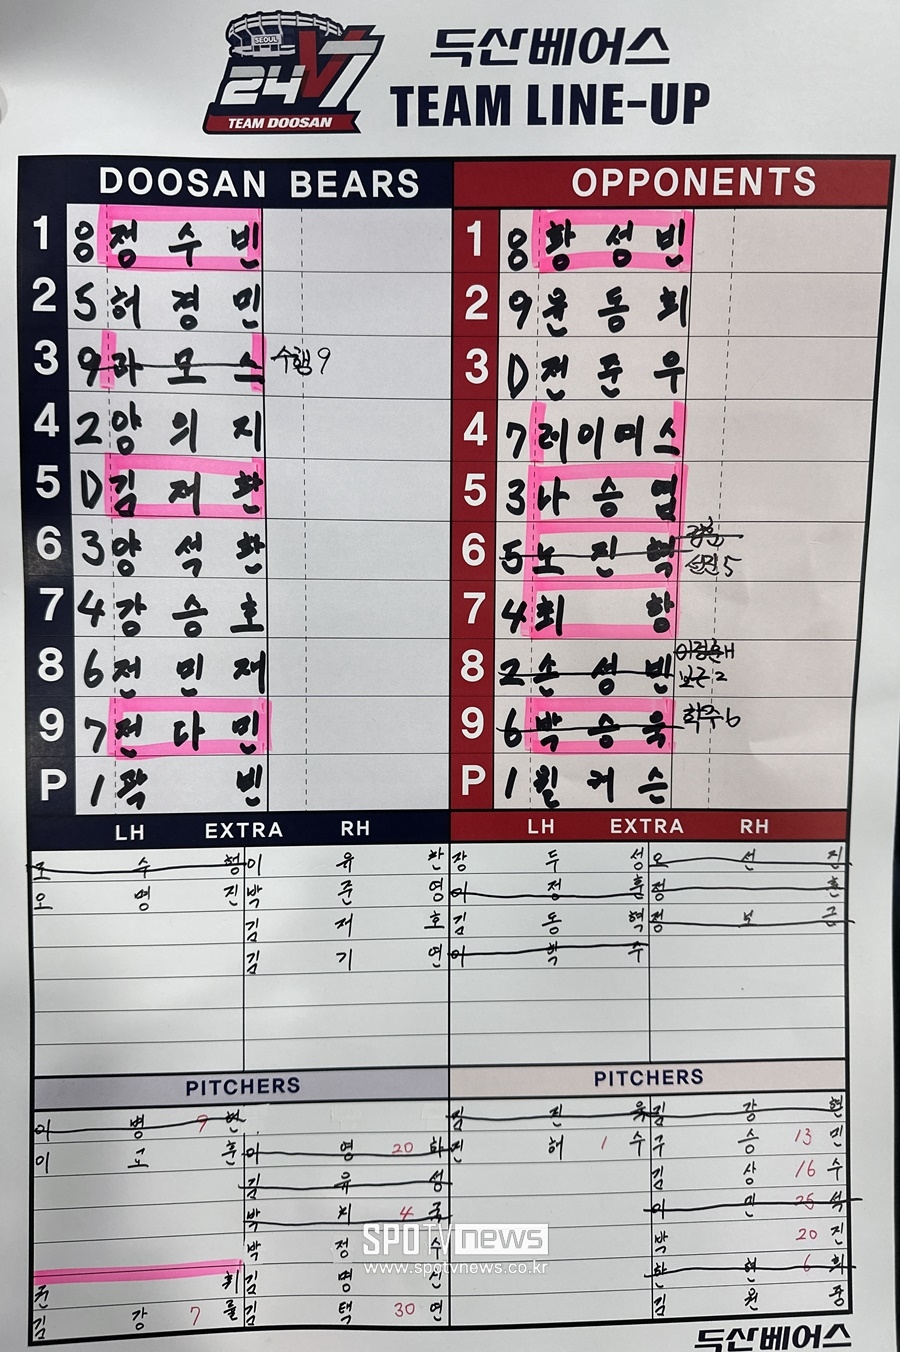 SEOUL
24 V7
TEAM DOOSAN
두산베어스
TEAM LINE-UP
DOOSAN BEARS
1 8 정수빈
2 5 허경민
3 9 라모스 수행 9
4 2 양의지
5 D 김재환
6 3 양석환
7 4 강승호
8 6 전민재
9 7 전다민
P 1 곽빈
OPPONENTS
1 8 황성빈
2 9 윤동희
3 D 전준우
4 7 레이예스
5 3 나승엽
6 5 노진혁 5
7 4 최항
8 2 손성빈 보근 2
9 6 박승욱 학주 6
P 1 윌커슨
LH EXTRA RH
조수행 이유찬
오명진 박준영
김재호
김기연
LH EXTRA RH
장두성 오선진
이정훈 정훈
김동혁 정보근
이학주
PITCHERS
이병헌 9
이교훈 이영하 20
김유성
박치국 4
박정수
권휘 김명신
김강률 7 김택연 30
PITCHERS
김진욱 김강현
진해수 1 구승민 13
김상수 16
이민석 25
박진 20
한현희 6
김원중
SPOTV news
www.spotvnews.co.kr
두산베어스